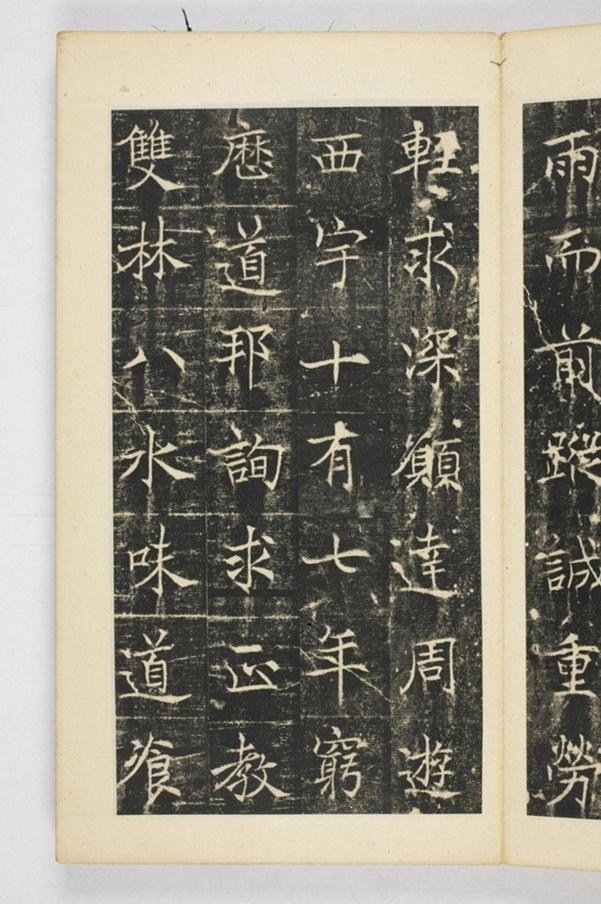 雨而前蹤誠重勞
軽求深願達周遊
西宇十有七年窮
歷道邦詢求正教
雙林八水味道飡